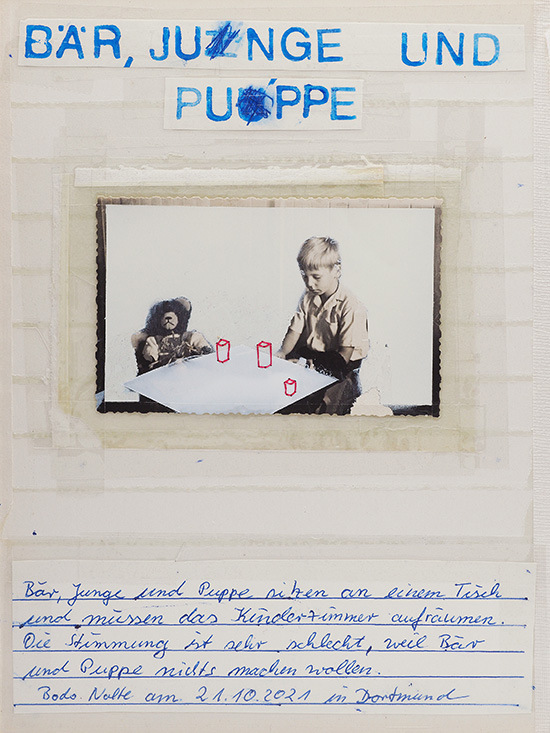 BÄR, JUNGE UND
PUPPE
Bär, Junge und Puppe sitzen an einem Tisch
und müssen das Kinderzimmer aufräumen.
Die Stimmung ist sehr schlecht, weil Bär
und Puppe nichts machen wollen.
Bodo Nolte am 21.10.2021 in Dortmund